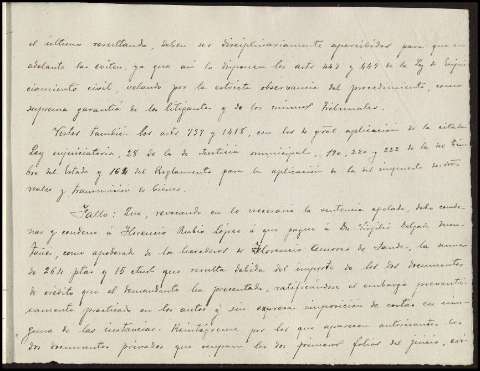 el último resultando, deben ser disciplinariamente apercibidos para que en
adelante las eviten, ya que así lo disponen los arts 443 y 449 de la Ley de Enjui
ciamiento civil, velando por la estricta observancia del procedimiento, como
suprema garantía de los litigantes y de los mismos Tribunales.
Vistos también los arts 737 y 1418, con los de gral aplicación de la citada
Ley enjuiciatoria, 28 de la de Justicia municipal, 190, 220 y 222 de la del Tim
bre del Estado y 162 del Reglamento para la aplicación de la del impuesto de dros
reales y transmisión de bienes.
Fallo: Que, revocando en lo necesario la sentencia apelada, debo conde
nar y condeno á Florencio Rubio López á que pague á Dn Virgilio Delgado
como apoderado de los herederos de Florencio de la suma
de 264 ptas y 15 cts que resulta debida del importe de los dos documentos
de crédito que el demandante ha presentado, ratificándose el embargo preventi
vamente practicado en los autos y sin expresa imposición de costas en nin
guna de las instancias. Reintégrense por los que aparecen autorizantes los
dos documentos privados que ocupan los dos primeros folios del juicio, así